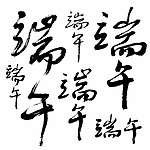 端午
端午
端午
端午
端午
端午